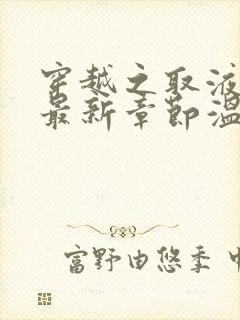 穿越之取液
最新章节温
富野由悠季